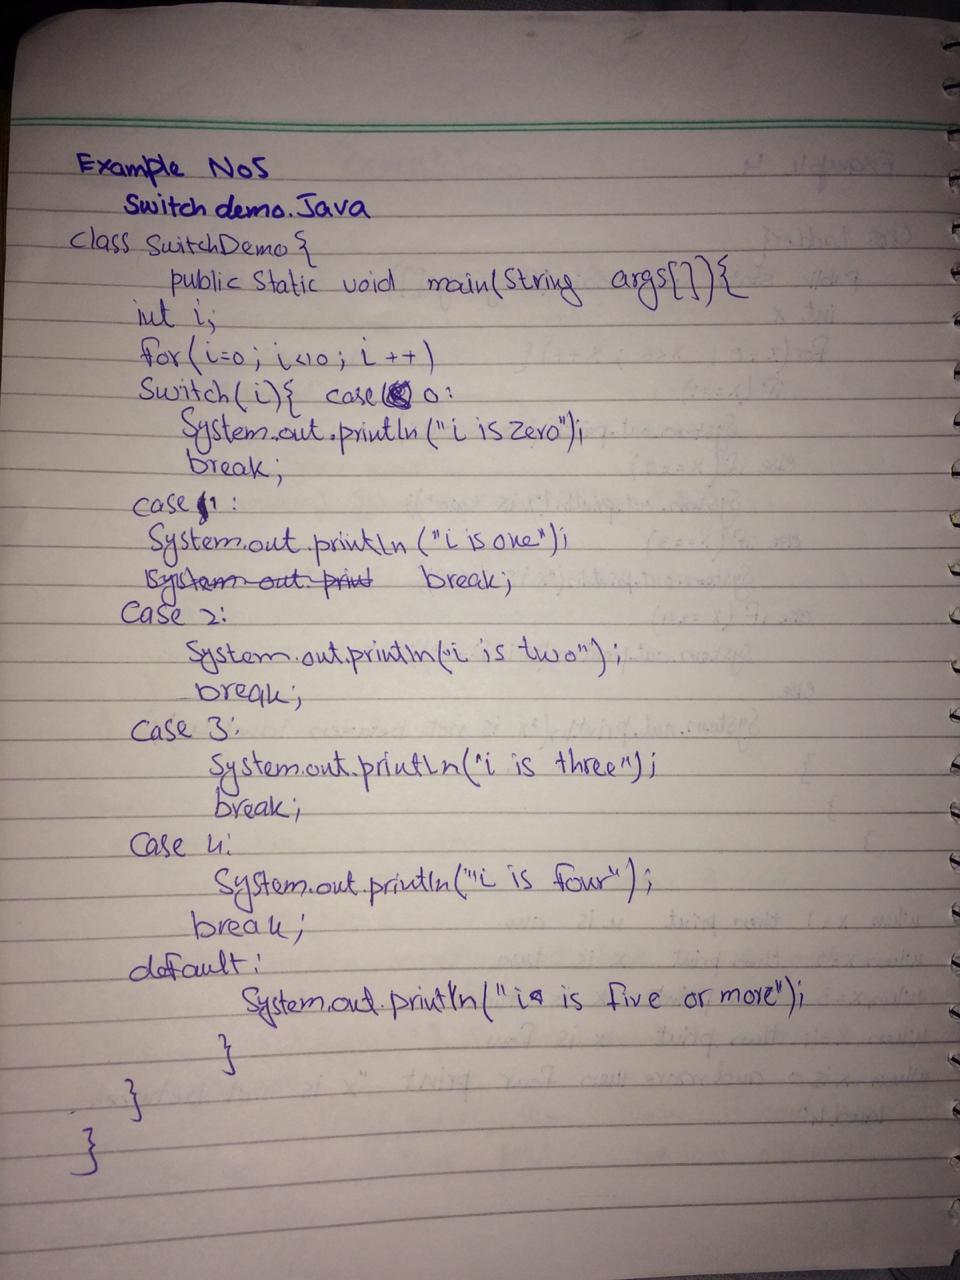 Example No5
Switch demo.Java
class SwitchDemo{
public Static void main(String args[]){
int i;
for(i=0; i<10; i ++)
Switch(i){ case 0:
System.out.println("i is zero");
break;
case 1:
System.out.println("i is one");
System out print break;
Case 2:
System.out.println("i is two");
break;
Case 3:
System.out.println("i is three");
break;
Case 4:
System.out.println("i is four");
break;
default:
System.out.println("i is five or more");
}
}
}